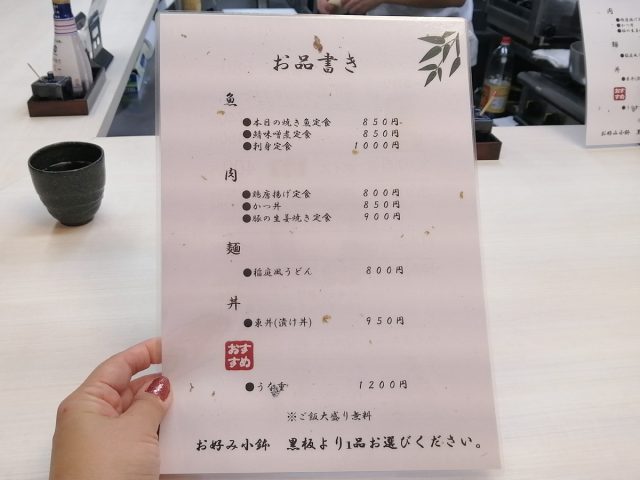 お品書き
魚
●本日の焼き魚定食 850円
●鯖味噌煮定食 850円
●刺身定食 1000円
肉
●鶏唐揚げ定食 800円
●かつ丼 850円
●豚の生姜焼き定食 900円
麺
●稲庭風うどん 800円
丼
●東丼(漬け丼) 950円
おすすめ
●うな重 1200円
※ご飯大盛り無料
お好み小鉢 黒板より1品お選びください。
肉
麺
丼
おすすめ
お好み小鉢